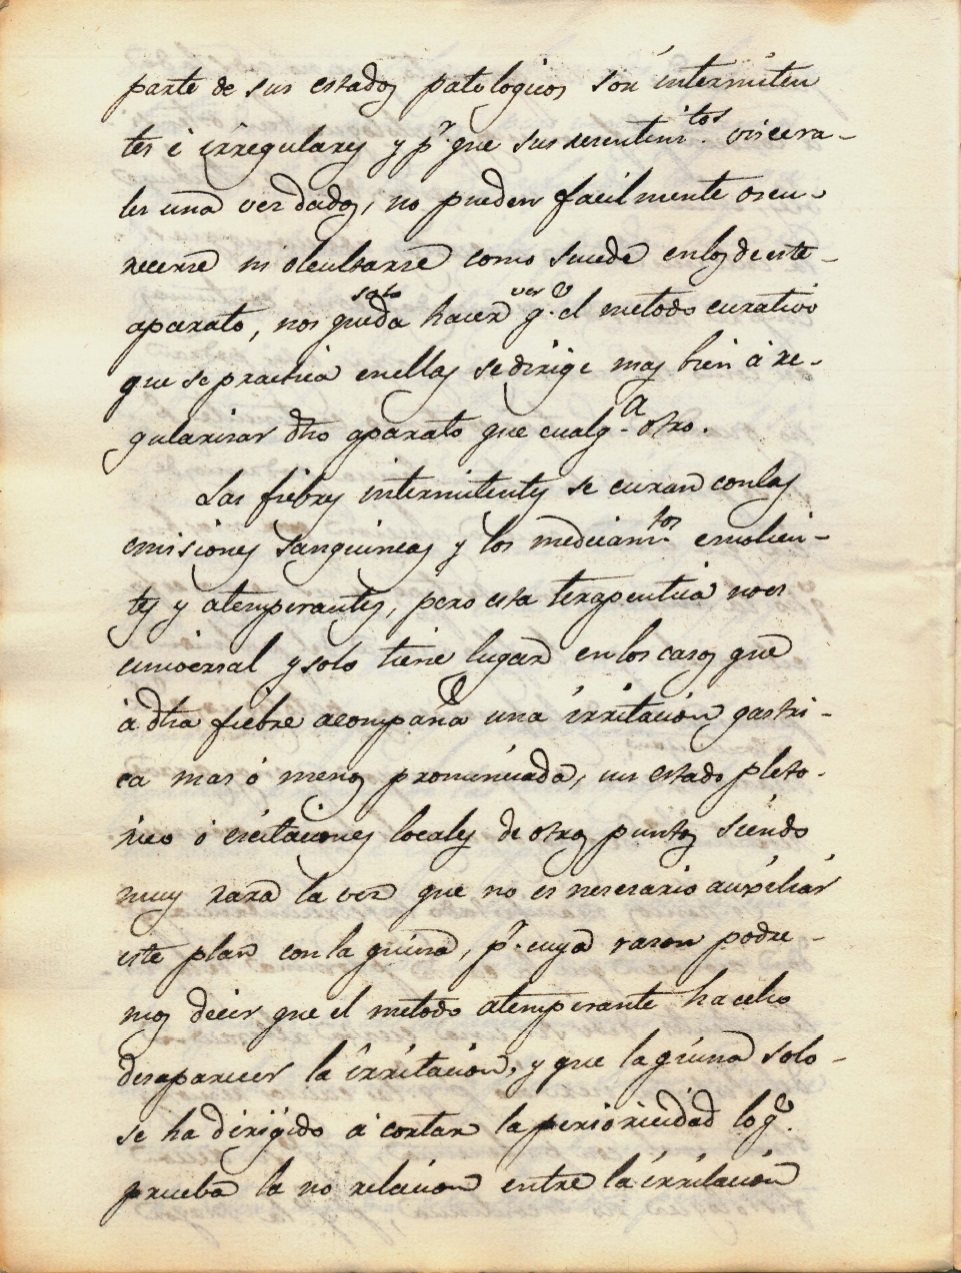 parte de sus estados patologicos son intermiten
tes é irregulares y pr. que sus resentimitos. viscera-
les una vez dados, no pueden facilmente oscu-
recerse ni ocultarse como sucede en los de este-
aparato, nos queda solo hacer ver qe. el metodo curativo
que se practica en ellas se dirige mas bien á re-
gularisar dho aparato que cualqa. otro.
Las fiebres intermitentes se curan con las
emisiones sanguineas y los medicamtos. emolien-
tes y atemperantes, pero esta terapeutica no es
universal y solo tiene lugar en los casos que
á dha fiebre acompaña una irritacion gastri-
ca mas ó menos pronunciada, un estado pleto-
rico ó ecsitaciones locales de otros puntos siendo
muy rara la vez que no es nesesario auxiliar
este plan con la quina, pr. cuya rason podre-
mos decir que el metodo atemperante ha echo
desaparecer la irritacion, y que la quina solo-
se ha dirijido á cortar la perioricidad lo qe.
prueba la no relacion entre la irritacion